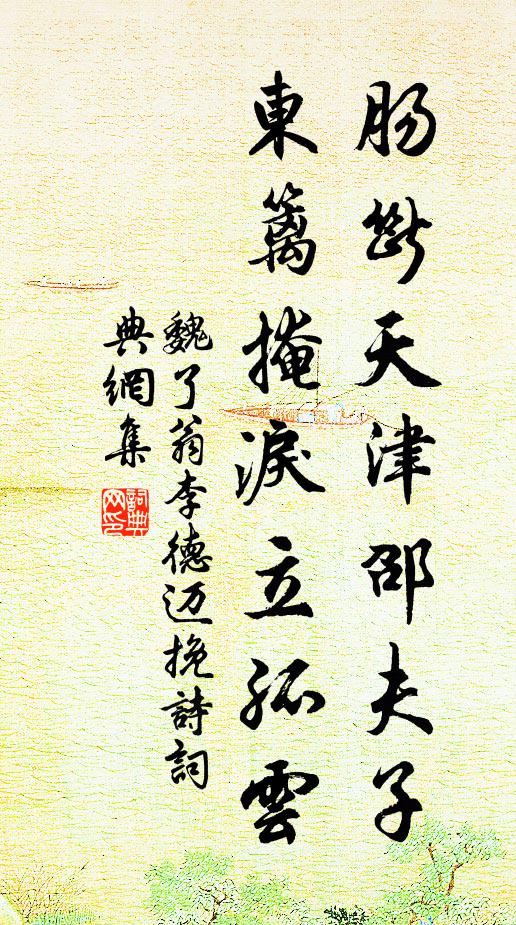 肠断天津邵夫子
東籬掩淚立孤雲
魏了翁李德迈挽詩詞
典網集
詞典
网印